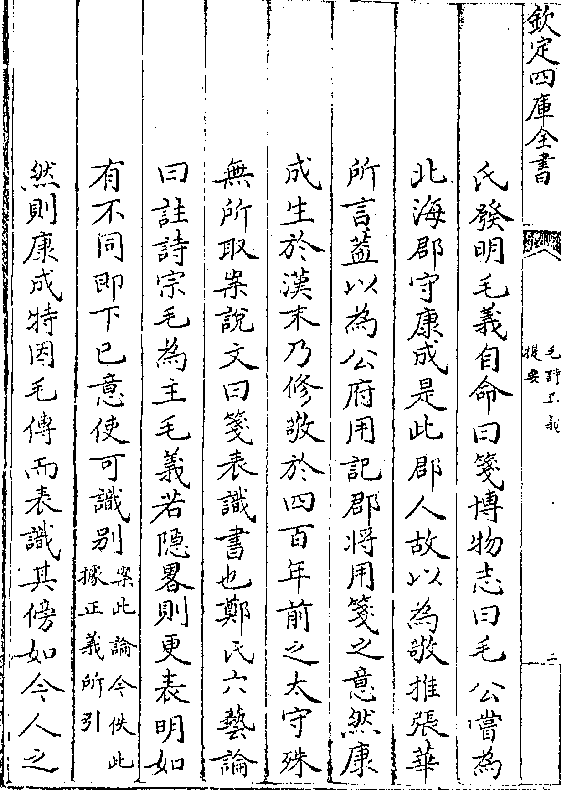 欽定四庫全書
毛詩正義
提要
二
氏發明毛義自命曰箋博物志曰毛公嘗為
北海郡守康成是此郡人故以為敬推張華
所言蓋以為公府用記郡將用箋之意然康
成生於漢末乃修敬於四百年前之太守殊
無所取案說文曰箋表識書也鄭氏六藝論
曰註詩宗毛為主毛義若隱畧則更表明如
有不同即下已意使可識别案此論今佚此據正義所引
然則康成特因毛傳而表識其傍如今人之